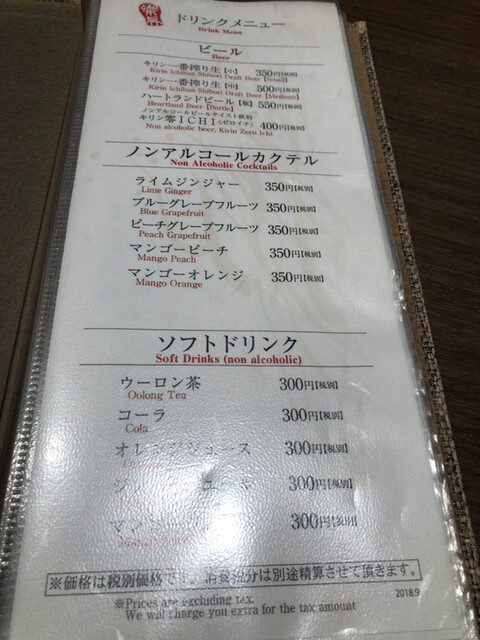 ドリンクメニュー
Drink Menu
ビール
Beer
キリン一番搾り生【小】 350円【税別】
Kirin Ichiban Shibori Draft Beer【Small】
キリン一番搾り生【中】 500円【税別】
Kirin Ichiban Shibori Draft Beer【Medium】
ハートランドビール【瓶】 550円【税別】
Heartland Beer【Bottle】
ノンアルコールビールテイスト飲料
キリン零ICHI（ゼロイチ） 400円【税別】
Non alcoholic beer, Kirin Zero Ichi
ノンアルコールカクテル
Non Alcoholic Cocktails
ライムジンジャー 350円【税別】
Lime Ginger
ブルーグレープフルーツ 350円【税別】
Blue Grapefruit
ピーチグレープフルーツ 350円【税別】
Peach Grapefruit
マンゴーピーチ 350円【税別】
Mango Peach
マンゴーオレンジ 350円【税別】
Mango Orange
ソフトドリンク
Soft Drinks (non alcoholic)
ウーロン茶 300円【税別】
Oolong Tea
コーラ 300円【税別】
Cola
オレンジジュース 300円【税別】
300円【税別】
300円【税別】
※価格は税別価格です。消費税分は別途精算させて頂きます。
※Prices are excluding tax.
We will charge you extra for the tax amount
2018.9